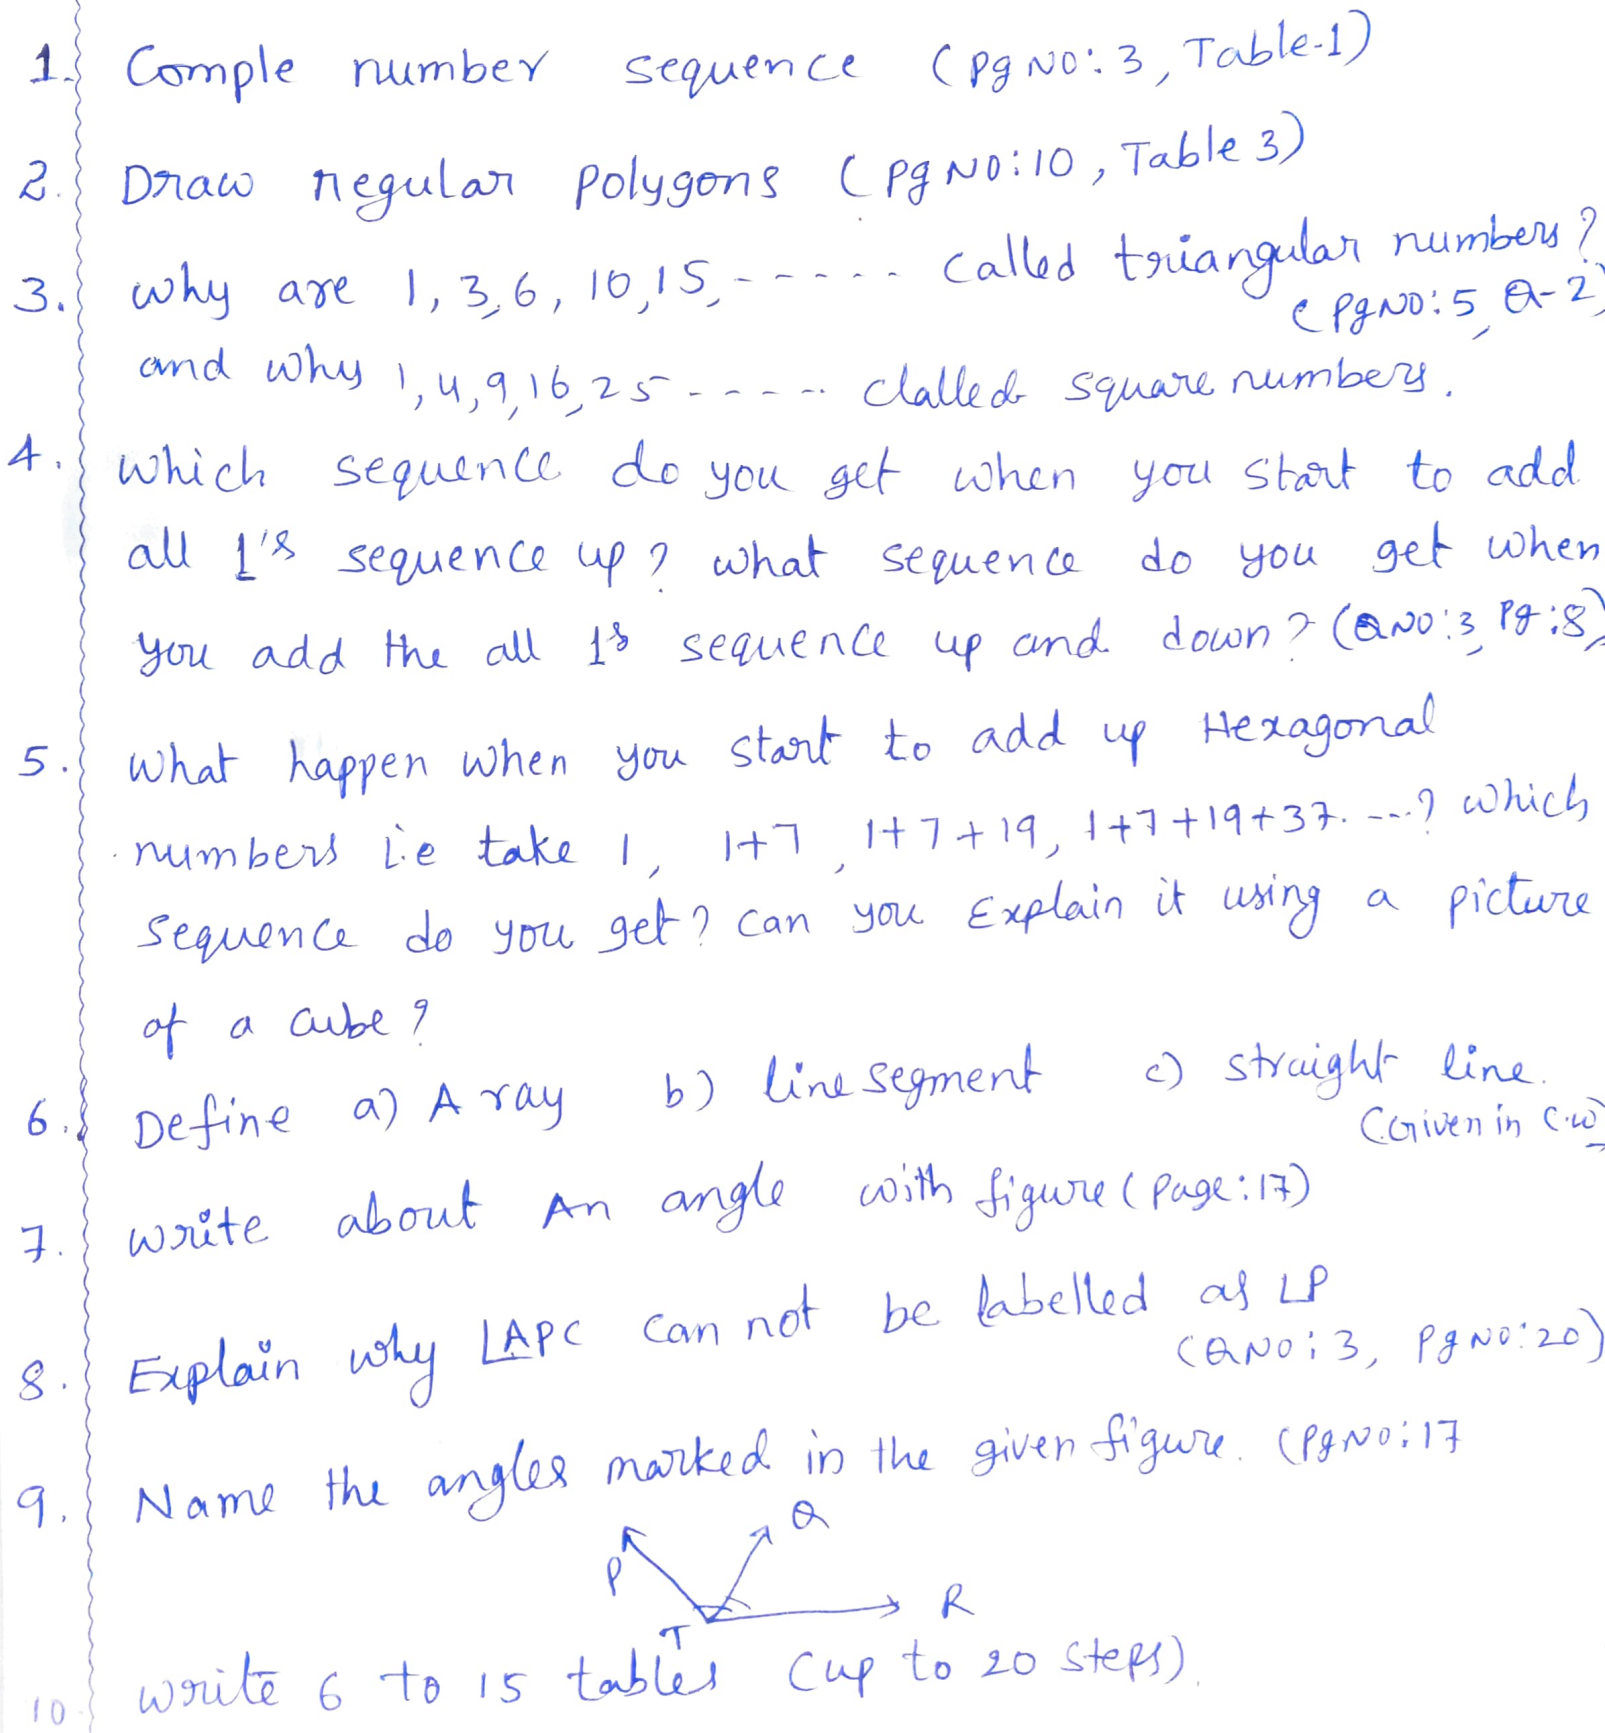 1. Comple number sequence (Pg No: 3, Table-1)
2. Draw regular polygons (Pg No: 10, Table 3)
3. why are 1, 3, 6, 10, 15, - - - - - called triangular numbers?
(Pg No: 5, Q-2)
and why 1, 4, 9, 16, 25 - - - - - clalled square numbers.
4. which sequence do you get when you start to add
all 1's sequence up? what sequence do you get when
you add the all 1s sequence up and down? (Q No: 3, Pg: 8)
5. what happen when you start to add up Hexagonal
numbers i.e take 1, 1+7, 1+7+19, 1+7+19+37. ---? which
sequence do you get? can you Explain it using a picture
of a cube?
6. Define a) A ray b) line segment c) straight line.
(Given in C.w)
7. write about An angle with figure (page: 17)
8. Explain why ∠APC can not be labelled as ∠P
(Q No: 3, Pg No: 20)
9. Name the angles marked in the given figure. (Pg No: 17
P Q
R
T
10. write 6 to 15 tables (up to 20 steps).